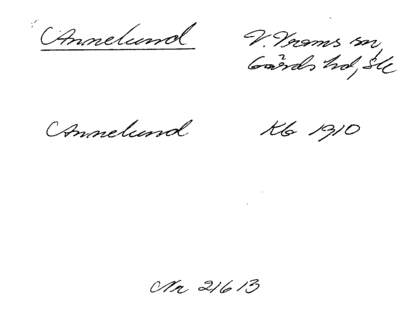 Annelund V. Vrams sn,
Gärds hd, Sk
Annelund Kb 1910
Nr 21613